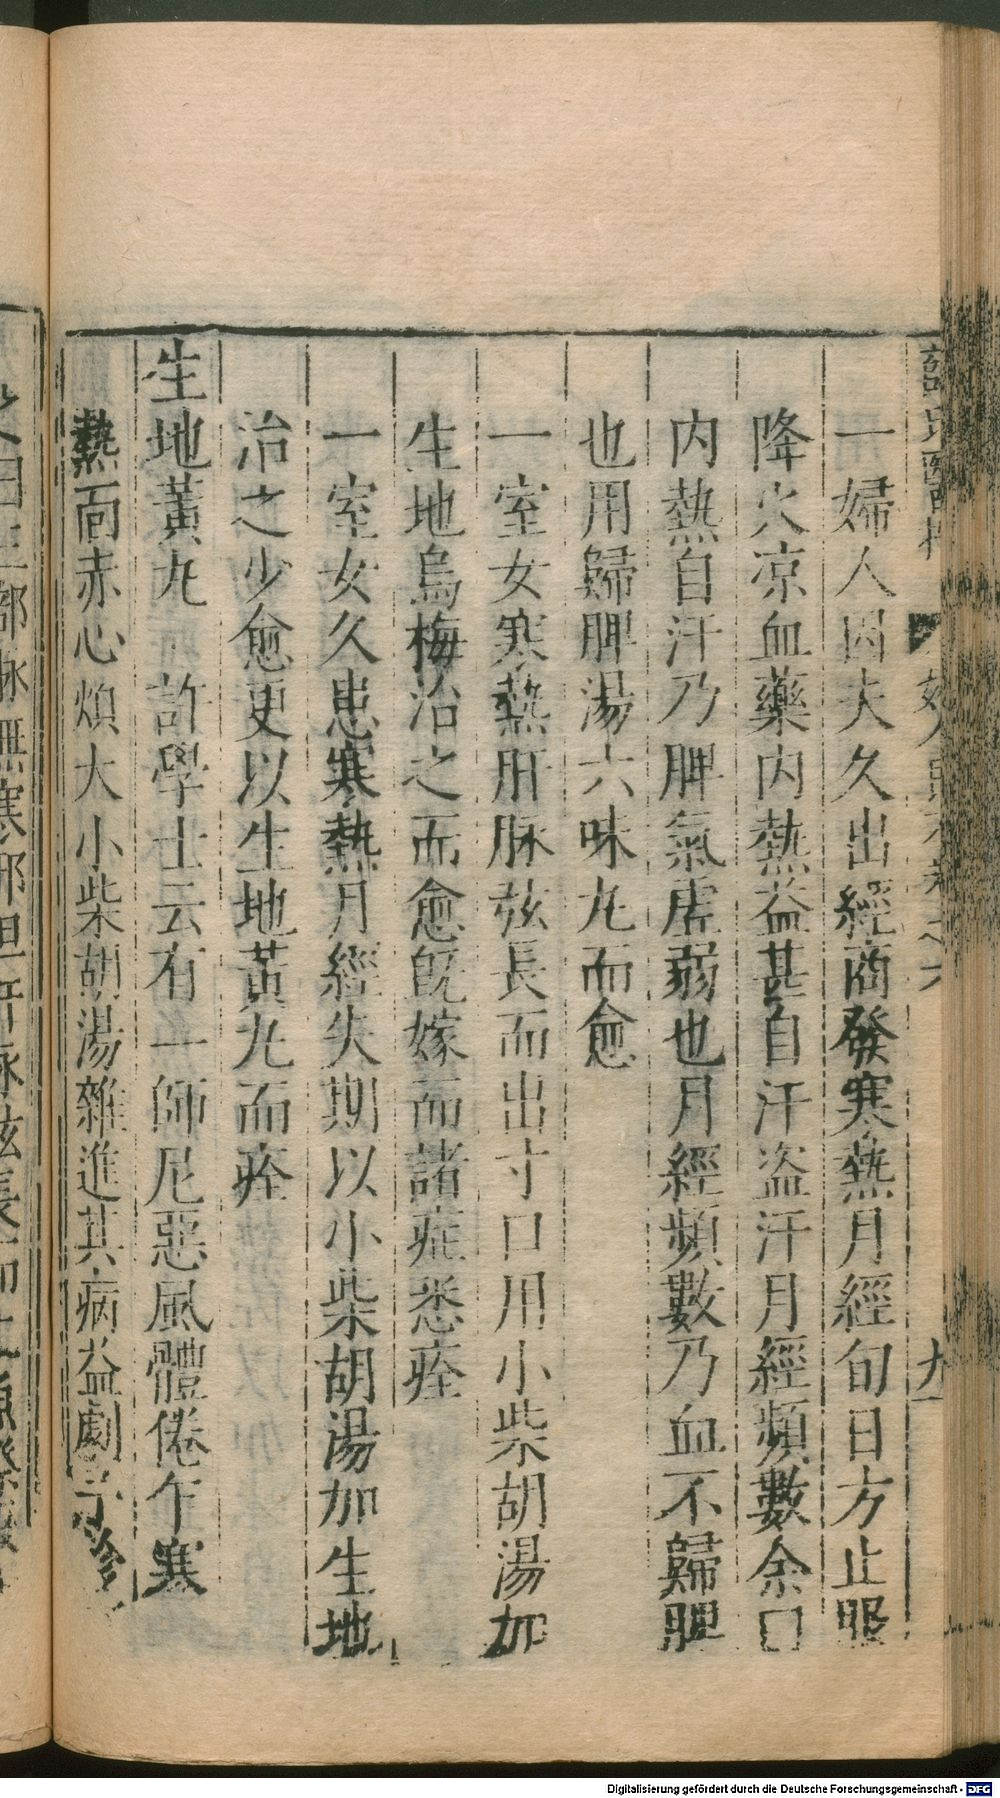 一婦人因夫久出經商發寒熱月經旬日方止服
降火凉血藥内熱益甚自汗盗汗月經頻數余曰
内熱自汗乃脾氣虚弱也月經頻數乃血不歸脾
也用歸脾湯六味丸而愈
一室女寒熱肝脉弦長而出寸口用小柴胡湯加
生地烏梅治之而愈既嫁而諸症悉痊
一室女久患寒熱月經失期以小柴胡湯加生地
治之少愈更以生地黃丸而痊
生地黃丸 許學士云有一師尼惡風體倦乍寒
熱面赤心煩大小柴胡湯雜進其病益劇予診
Digitalisierung gefördert durch die Deutsche Forschungsgemeinschaft - DFG